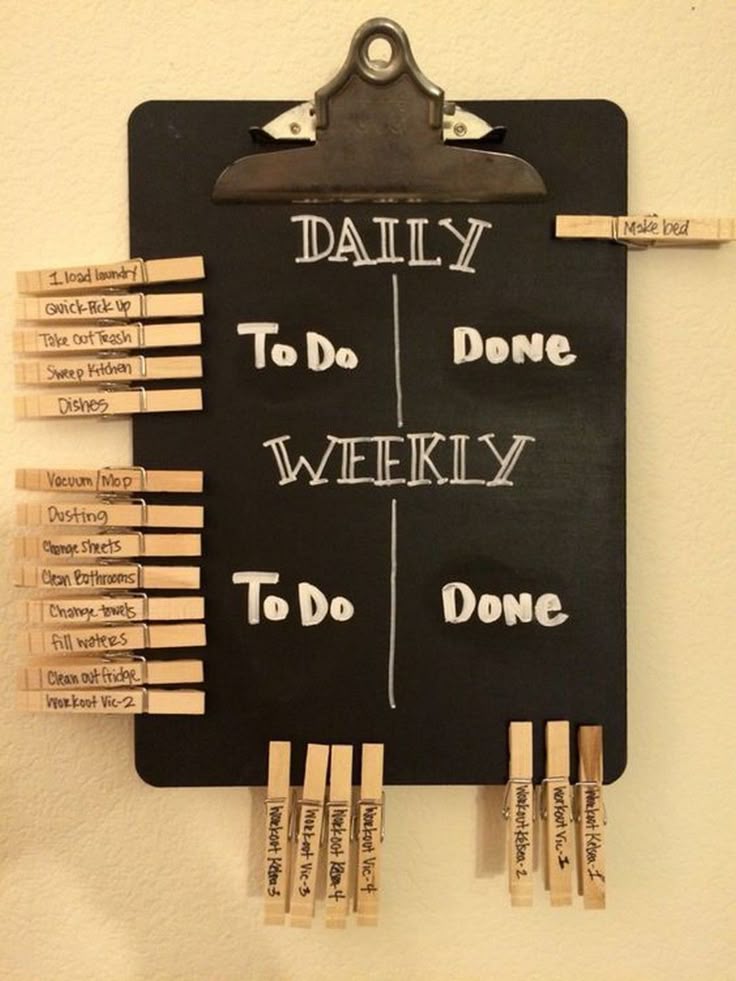 DAILY
Make bed
1 load laundry
Quick Pick Up
Take out Trash
Sweep Kitchen
Dishes
To Do
Done
WEEKLY
Vacuum/Mop
Dusting
Change sheets
Clean Bathrooms
Change towels
fill waters
Clean out fridge
Workout Vic-2
To Do
Done
Workout Kelsea-3
Workout Vic-3
Workout Kelsea-4
Workout Vic-4
Workout Kelsea-2
Workout Vic-1
Workout Kelsea-1